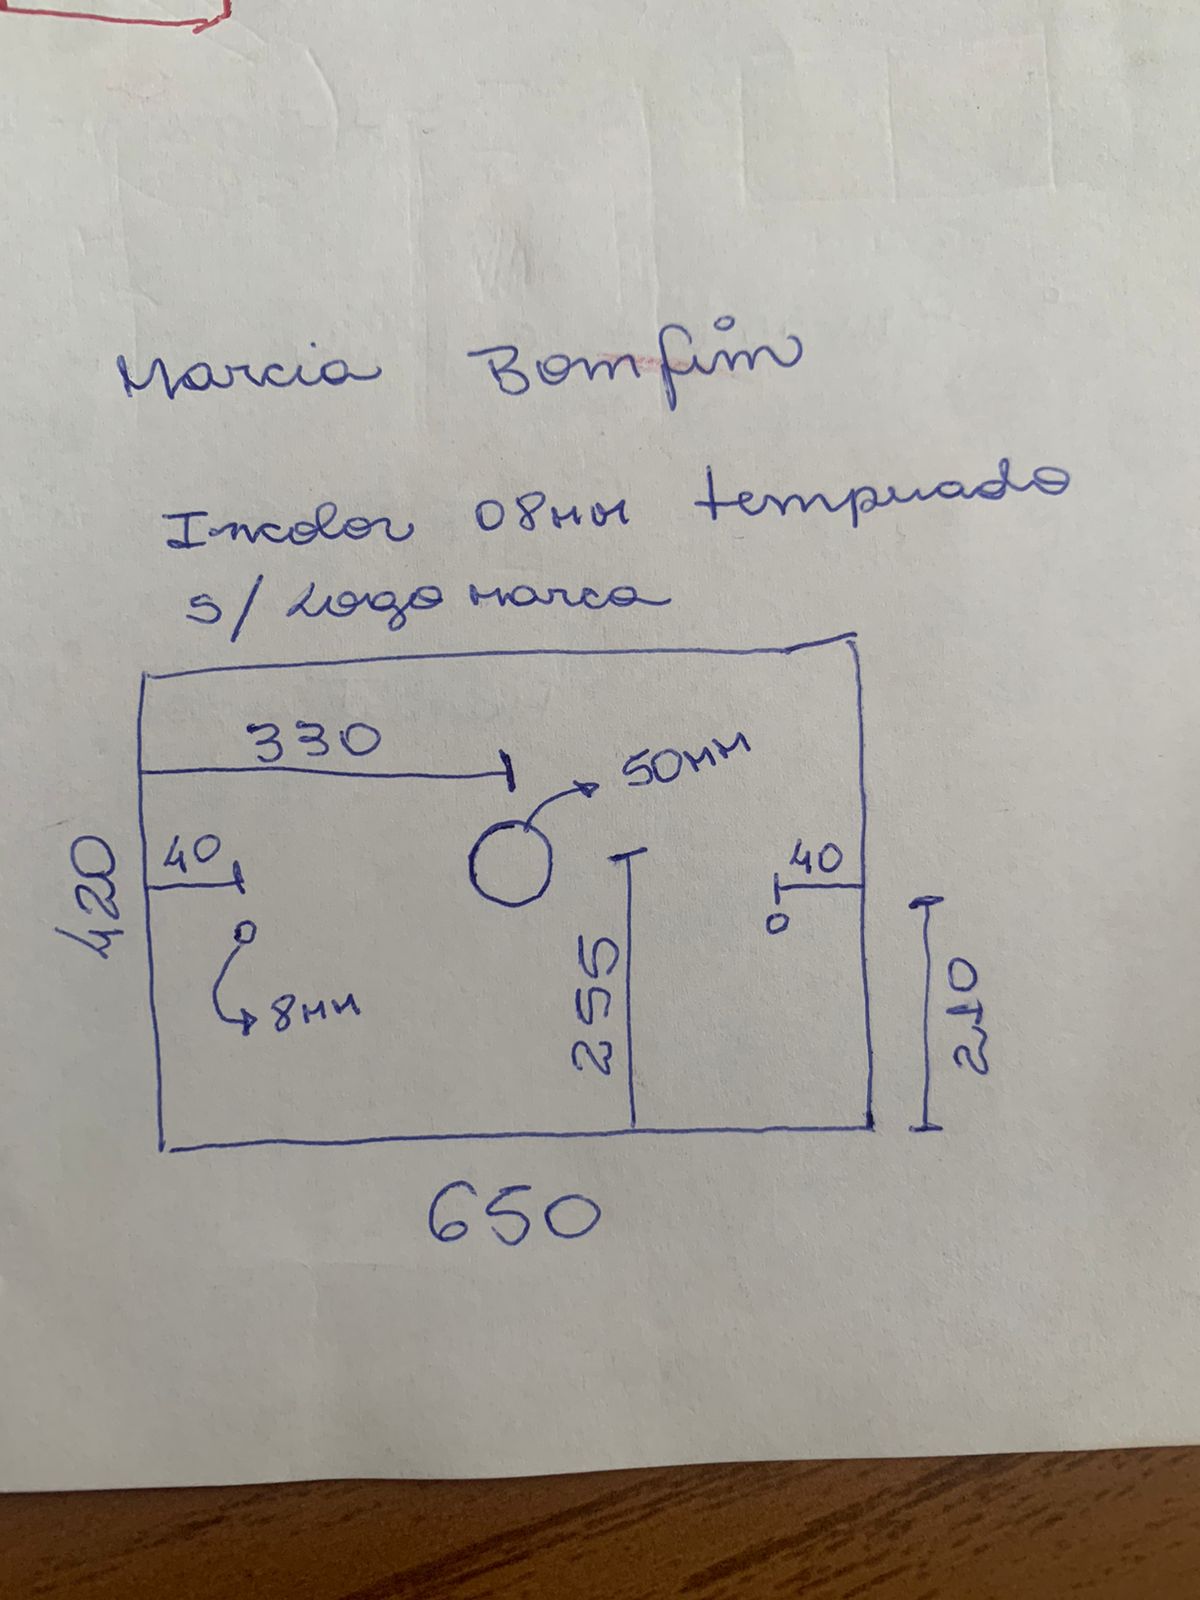 Marcia Bomfim
Incolor 08mm temperado
s/ Logo marca
330
50mm
40
40
420
8mm
255
210
650